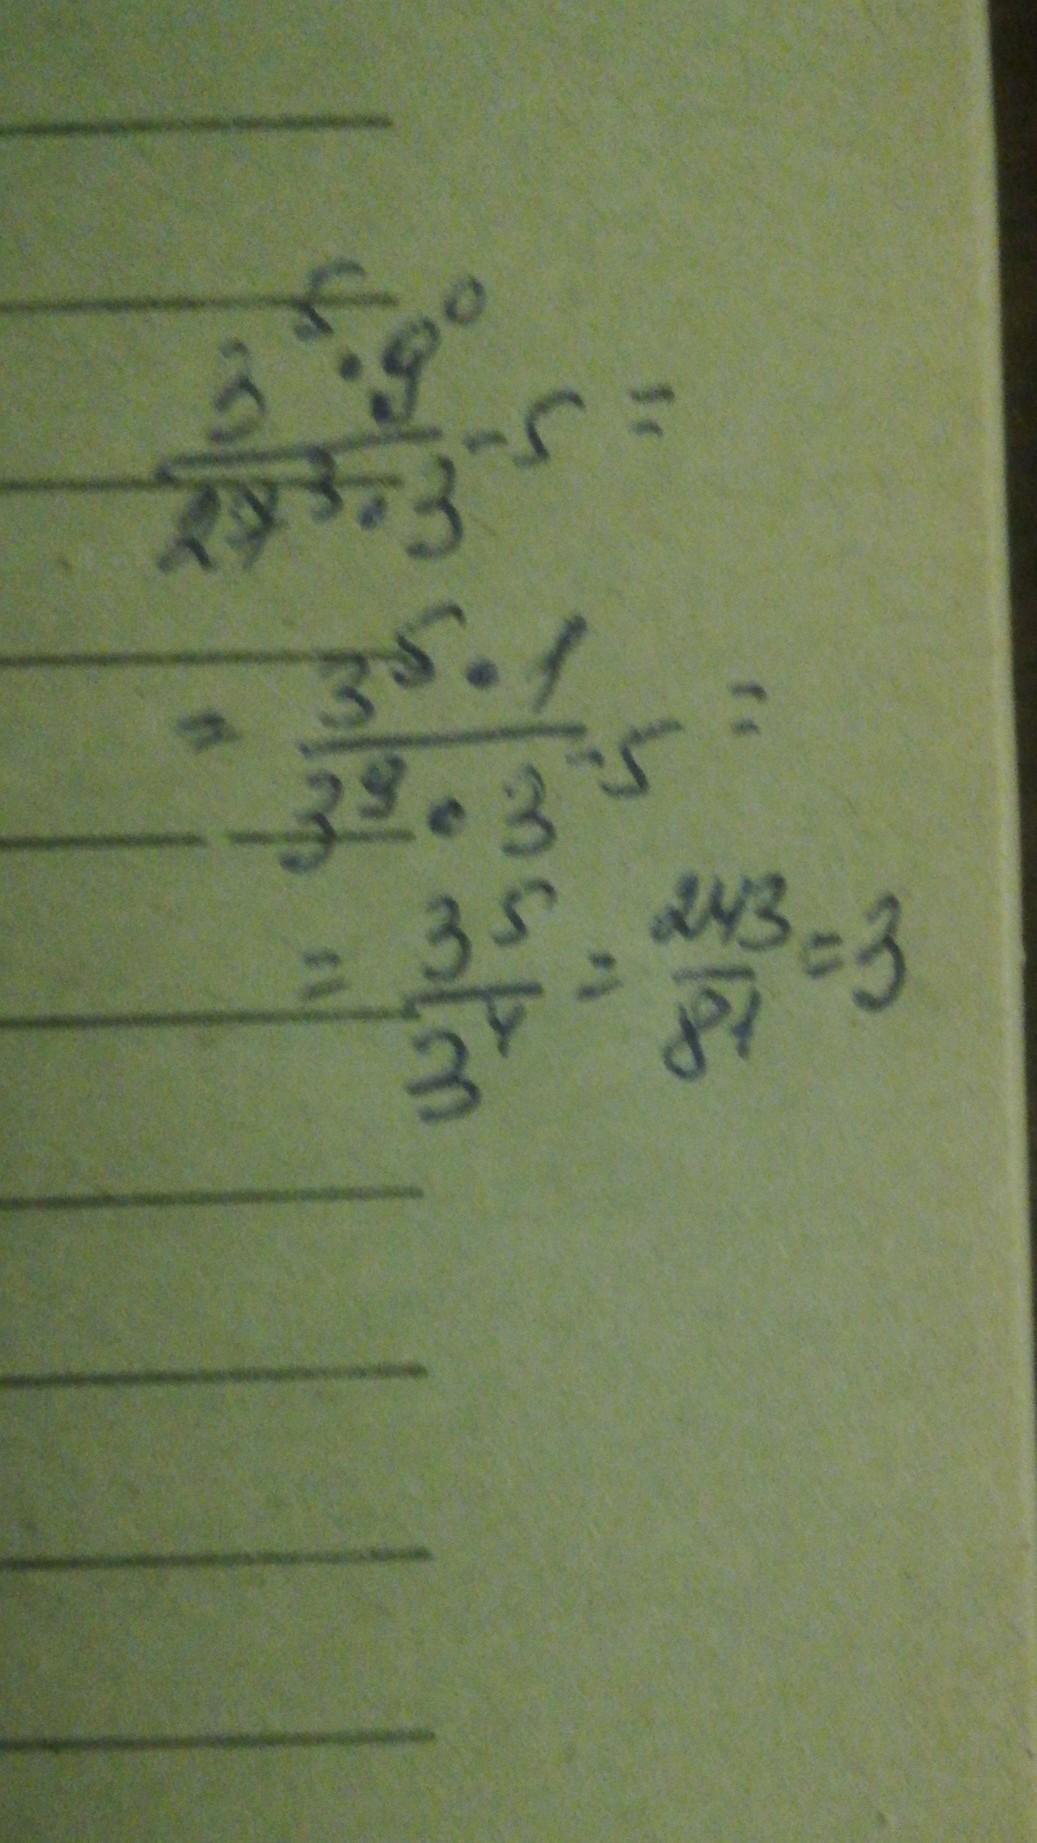 3⁵·9⁰ / 27³·3⁻⁵ =
= 3⁵·1 / 3⁹·3⁻⁵ =
= 3⁵ / 3⁴ = 243 / 81 = 3